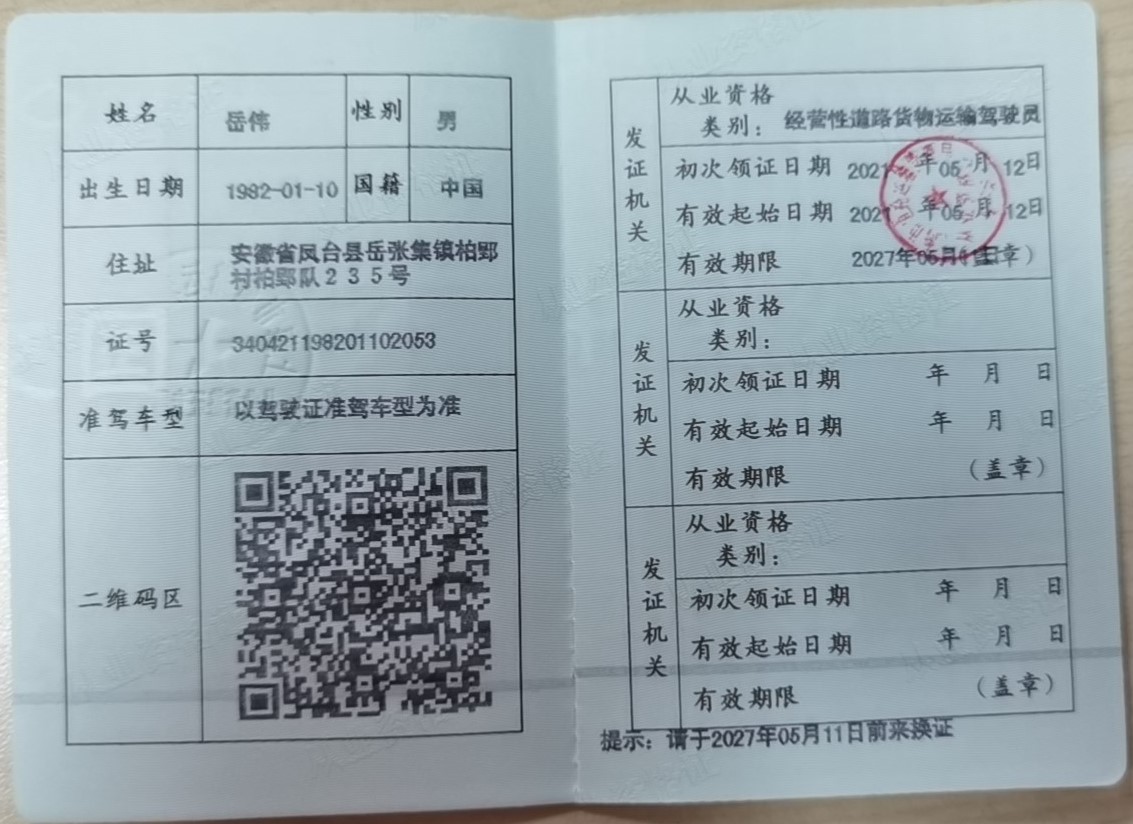 姓名 岳伟 性别 男
出生日期 1982-01-10 国籍 中国
住址 安徽省凤台县岳张集镇柏郢
村柏郢队235号
证号 340421198201102053
准驾车型 以驾驶证准驾车型为准
二维码区
发证机关
从业资格
类别：经营性道路货物运输驾驶员
初次领证日期 2021年05月12日
有效起始日期 2021年05月12日
有效期限 2027年05月11日(盖章)
发证机关
从业资格
类别：
初次领证日期 年 月 日
有效起始日期 年 月 日
有效期限 (盖章)
发证机关
从业资格
类别：
初次领证日期 年 月 日
有效起始日期 年 月 日
有效期限 (盖章)
提示：请于2027年05月11日前来换证